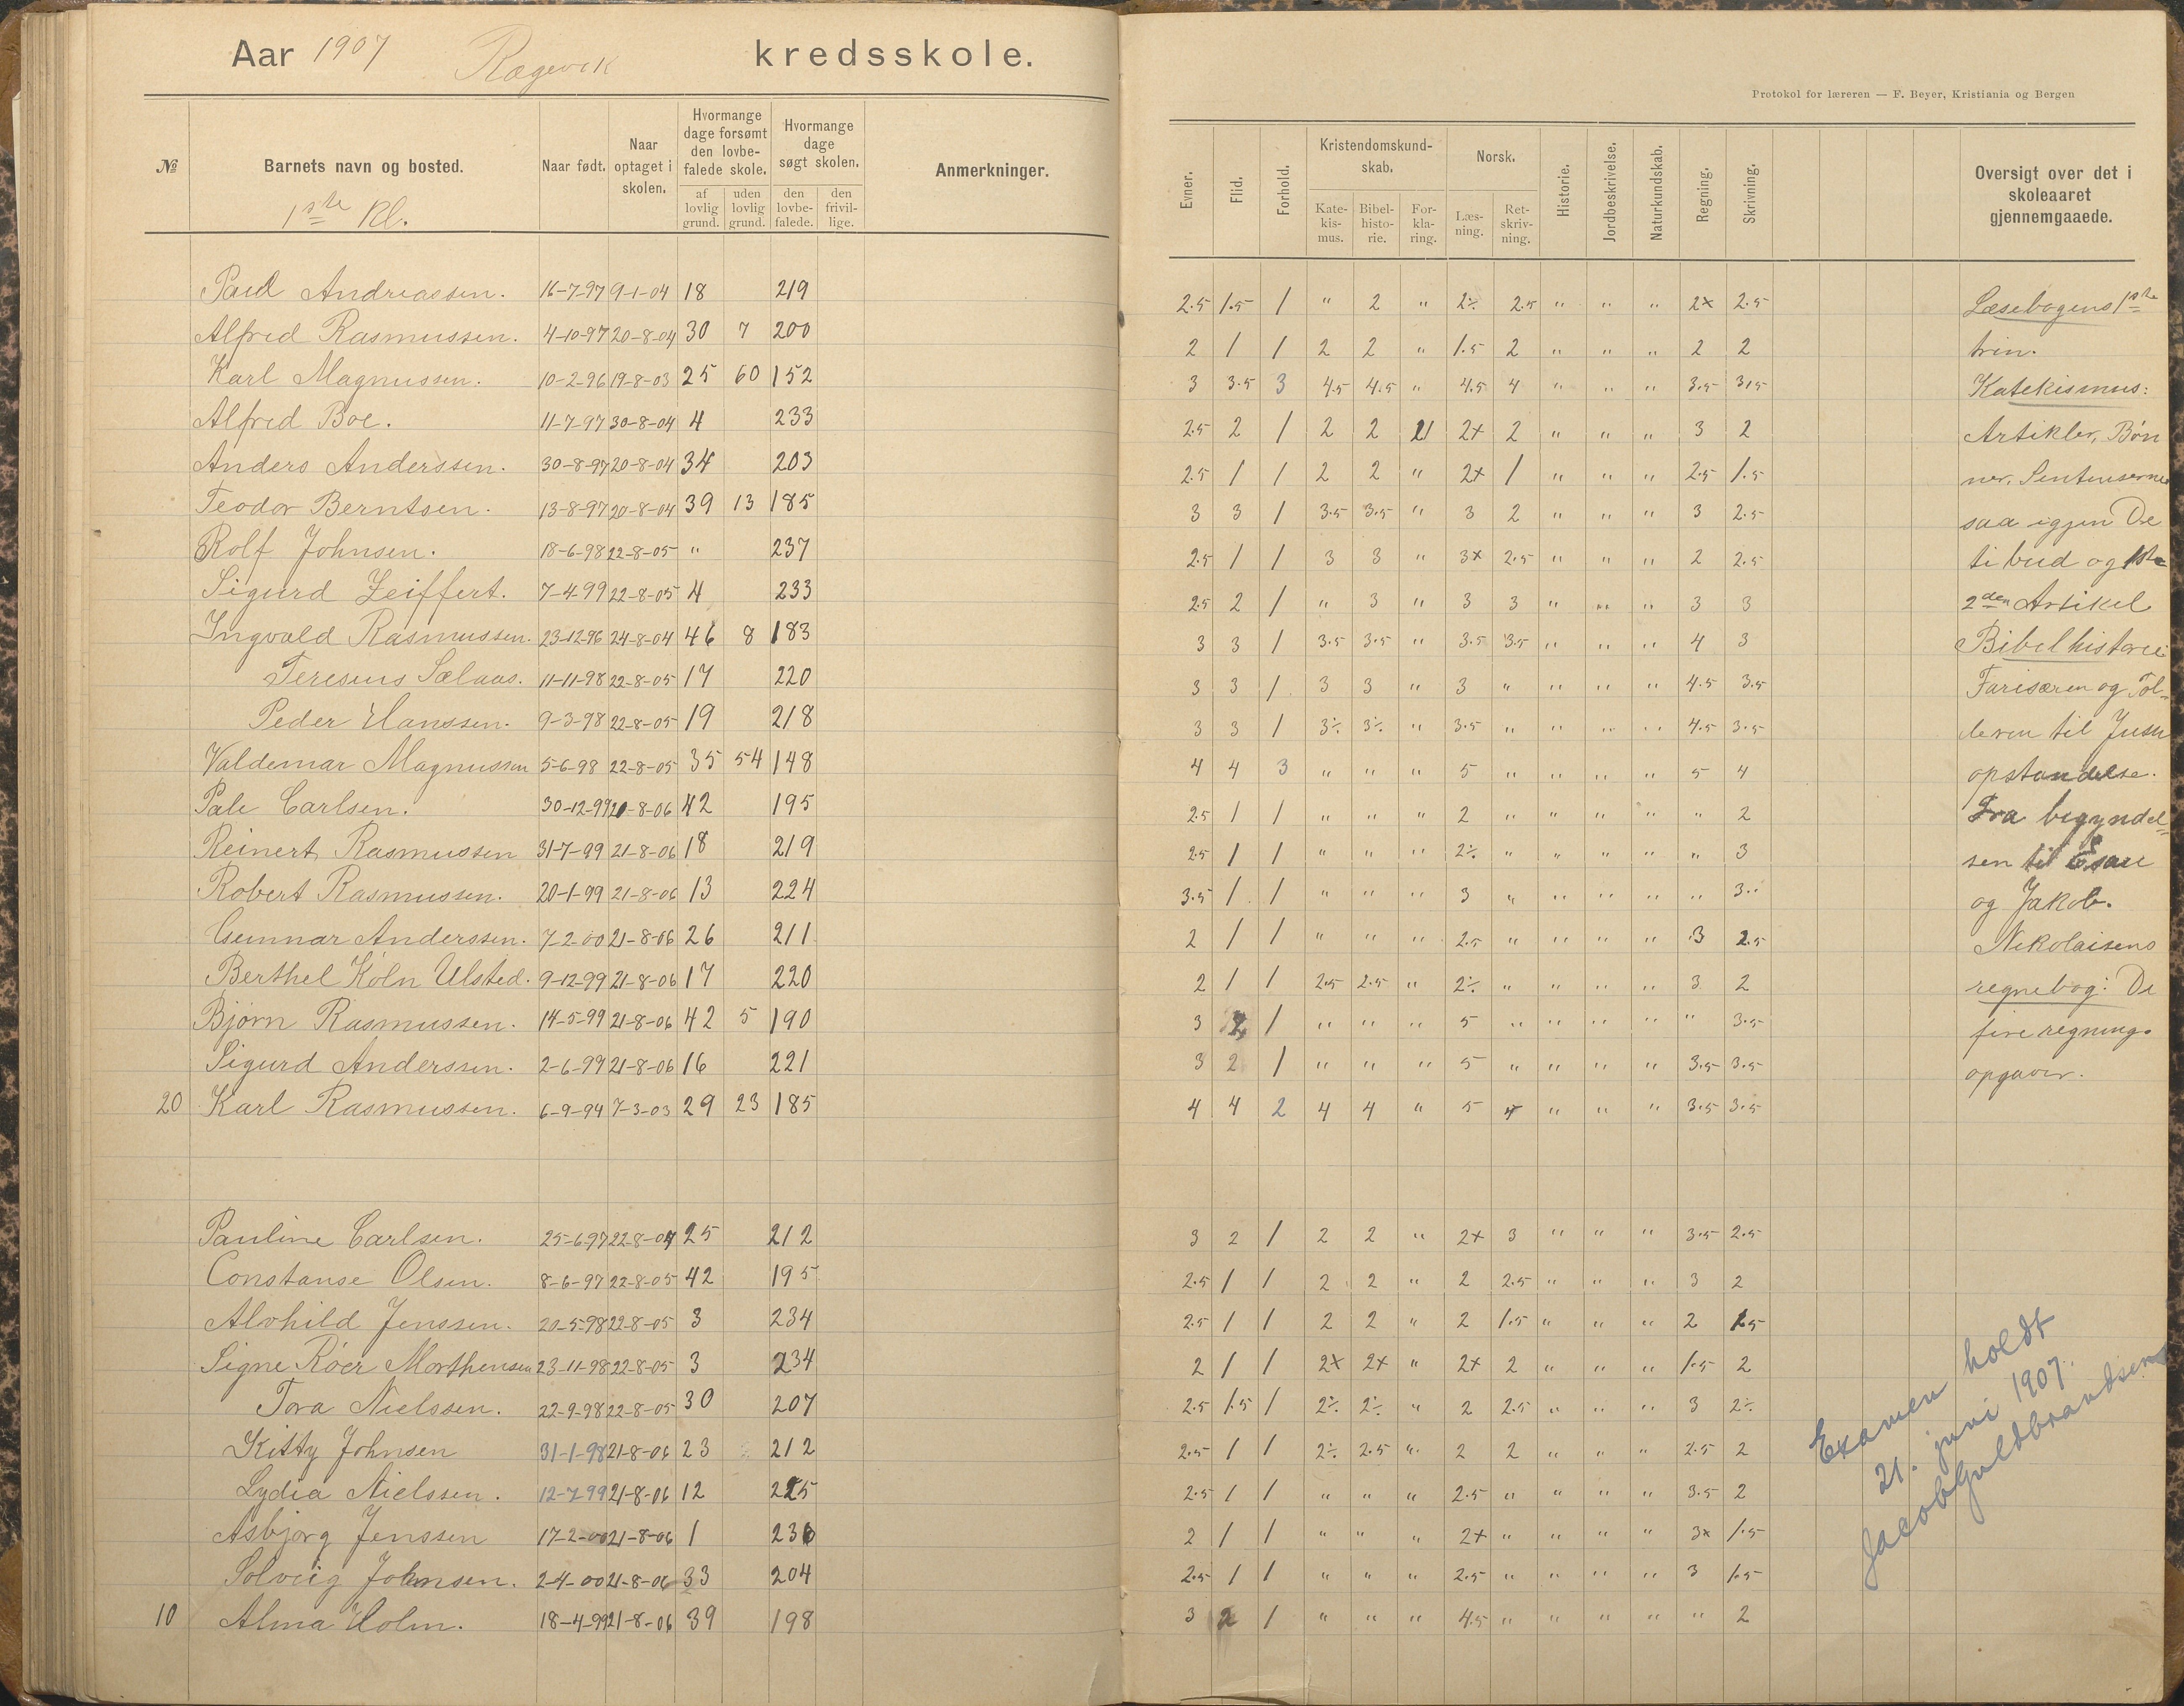 Aar 1907 Rægevik kredsskole.
№ Barnets navn og bosted. Naar født. Naar optaget i skolen. Hvormange dage forsømt den lovbefalede skole. af lovlig grund. uden lovlig grund. Hvormange dage søgt skolen. den lovbefalede. den frivillige. Anmerkninger.
1ste Kl.
Paul Andreassen. 16-7-97 9-1-04 18 219
Alfred Rasmussen. 4-10-97 20-8-04 30 7 200
Karl Magnussen. 10-2-96 19-8-03 25 60 152
Alfred Boe. 11-7-97 30-8-04 4 233
Anders Anderssen. 30-8-97 20-8-04 34 203
Teodor Berntsen. 13-8-97 20-8-04 39 13 185
Rolf Johnsen. 18-6-98 22-8-05 " 237
Sigurd Zeiffert. 7-4-99 22-8-05 4 233
Ingvald Rasmussen. 23-12-96 24-8-04 46 8 183
Teresius Sælaas. 11-11-98 22-8-05 17 220
Peder Hanssen. 9-3-98 22-8-05 19 218
Valdemar Magnussen 5-6-98 22-8-05 35 54 148
Pale Carlsen. 30-12-99 21-8-06 42 195
Reinert Rasmussen 31-7-99 21-8-06 18 219
Robert Rasmussen. 20-1-99 21-8-06 13 224
Gunnar Anderssen. 7-2-00 21-8-06 26 211
Berthel Köln Ulsted. 9-12-99 21-8-06 17 220
Bjørn Rasmussen. 14-5-99 21-8-06 42 5 190
Sigurd Anderssen. 2-6-99 21-8-06 16 221
20 Karl Rasmussen. 6-9-94 7-3-03 29 23 185
Pauline Carlsen. 25-6-97 22-8-04 25 212
Constanse Olsen. 8-6-97 22-8-05 42 195
Alvhild Jenssen. 20-5-98 22-8-05 3 234
Signe Röer Morthensen 23-11-98 22-8-05 3 234
Tora Nielssen. 22-9-98 22-8-05 30 207
Kitty Johnsen 31-1-98 21-8-06 23 212
Lydia Nielssen. 12-7-99 21-8-06 12 225
Asbjørg Jenssen 17-2-00 21-8-06 1 236
Solveig Johnsen. 2-4-00 21-8-06 33 204
10 Alma Holm. 18-4-99 21-8-06 39 198
Protokol for læreren — F. Beyer, Kristiania og Bergen
Evner. Flid. Forhold. Kristendomskundskab. Katekismus. Bibelhistorie. Forklaring. Norsk. Læsning. Retskrivning. Historie. Jordbeskrivelse. Naturkundskab. Regning. Skrivning. Oversigt over det i skoleaaret gjennemgaaede.
2.5 1.5 1 " 2 " 2÷ 2.5 " " " 2× 2.5 Læsebogens 1ste
2 1 1 2 2 " 1.5 2 " " " 2 2 trin.
3 3.5 3 4.5 4.5 " 4.5 4 " " " 3.5 3.5 Katekismus:
2.5 2 1 2 2 " 2+ 2 " " " 3 2 Artikler, Bøn
2.5 1 1 2 2 " 2+ 1 " " " 2.5 1.5 ner. Sentenserne
3 3 1 3.5 3.5 " 3 2 " " " 3 2.5 saa igjen De
2.5 1 1 3 3 " 3× 2.5 " " " 2 2.5 ti bud og 1ste
2.5 2 1 " 3 " 3 3 " " " 3 3 2den Artikel
3 3 1 3.5 3.5 " 3.5 3.5 " " " 4 3 Bibelhistorie
3 3 1 3 3 " 3 " " " " 4.5 3.5 Farisæren og Tol-
3 3 1 3÷ 3÷ " 3.5 " " " " 4.5 3.5 deren til Jesu
4 4 3 " " " 5 " " " " 5 4 opstandelse.
2.5 1 1 " " " 2 " " " " " 2 Fra begyndel-
2.5 1 1 " " " 2÷ " " " " " 3 sen til Esau
3.5 1 1 " " " 3 " " " " " 3.. og Jakob.
2 1 1 " " " 2.5 " " " " 3 2.5 Nikolaisens
2 1 1 2.5 2.5 " 2÷ " " " " 3 2 regnebog: De
3 2 1 " " " 5 " " " " " 3.5 fire regnings
3 2 1 " " " 5 " " " " 3.5 3.5 opgaver.
4 4 2 4 4 " 5 4 " " " 3.5 3.5
3 2 1 2 2 " 2+ 3 " " " 3.5 2.5
2.5 1 1 2 2 " 2 2.5 " " " 3 2
2.5 1 1 2 2 " 2 1.5 " " " 2 1.5
2 1 1 2+ 2+ " 2+ 2 " " " 1.5 2
2.5 1.5 1 2÷ 2÷ " 2 2.5 " " " 3 2÷
2.5 1 1 2÷ 2.5 " 2 2 " " " 2.5 2
2.5 1 1 " " " 2.5 " " " " 3.5 2
2 1 1 " " " 2+ " " " " 3× 1.5
2.5 1 1 " " " 2.5 " " " " 3 1.5
3 2 1 " " " 4.5 " " " " " 2
Examen holdt
21. juni 1907.
Jacob Guldbrandsen